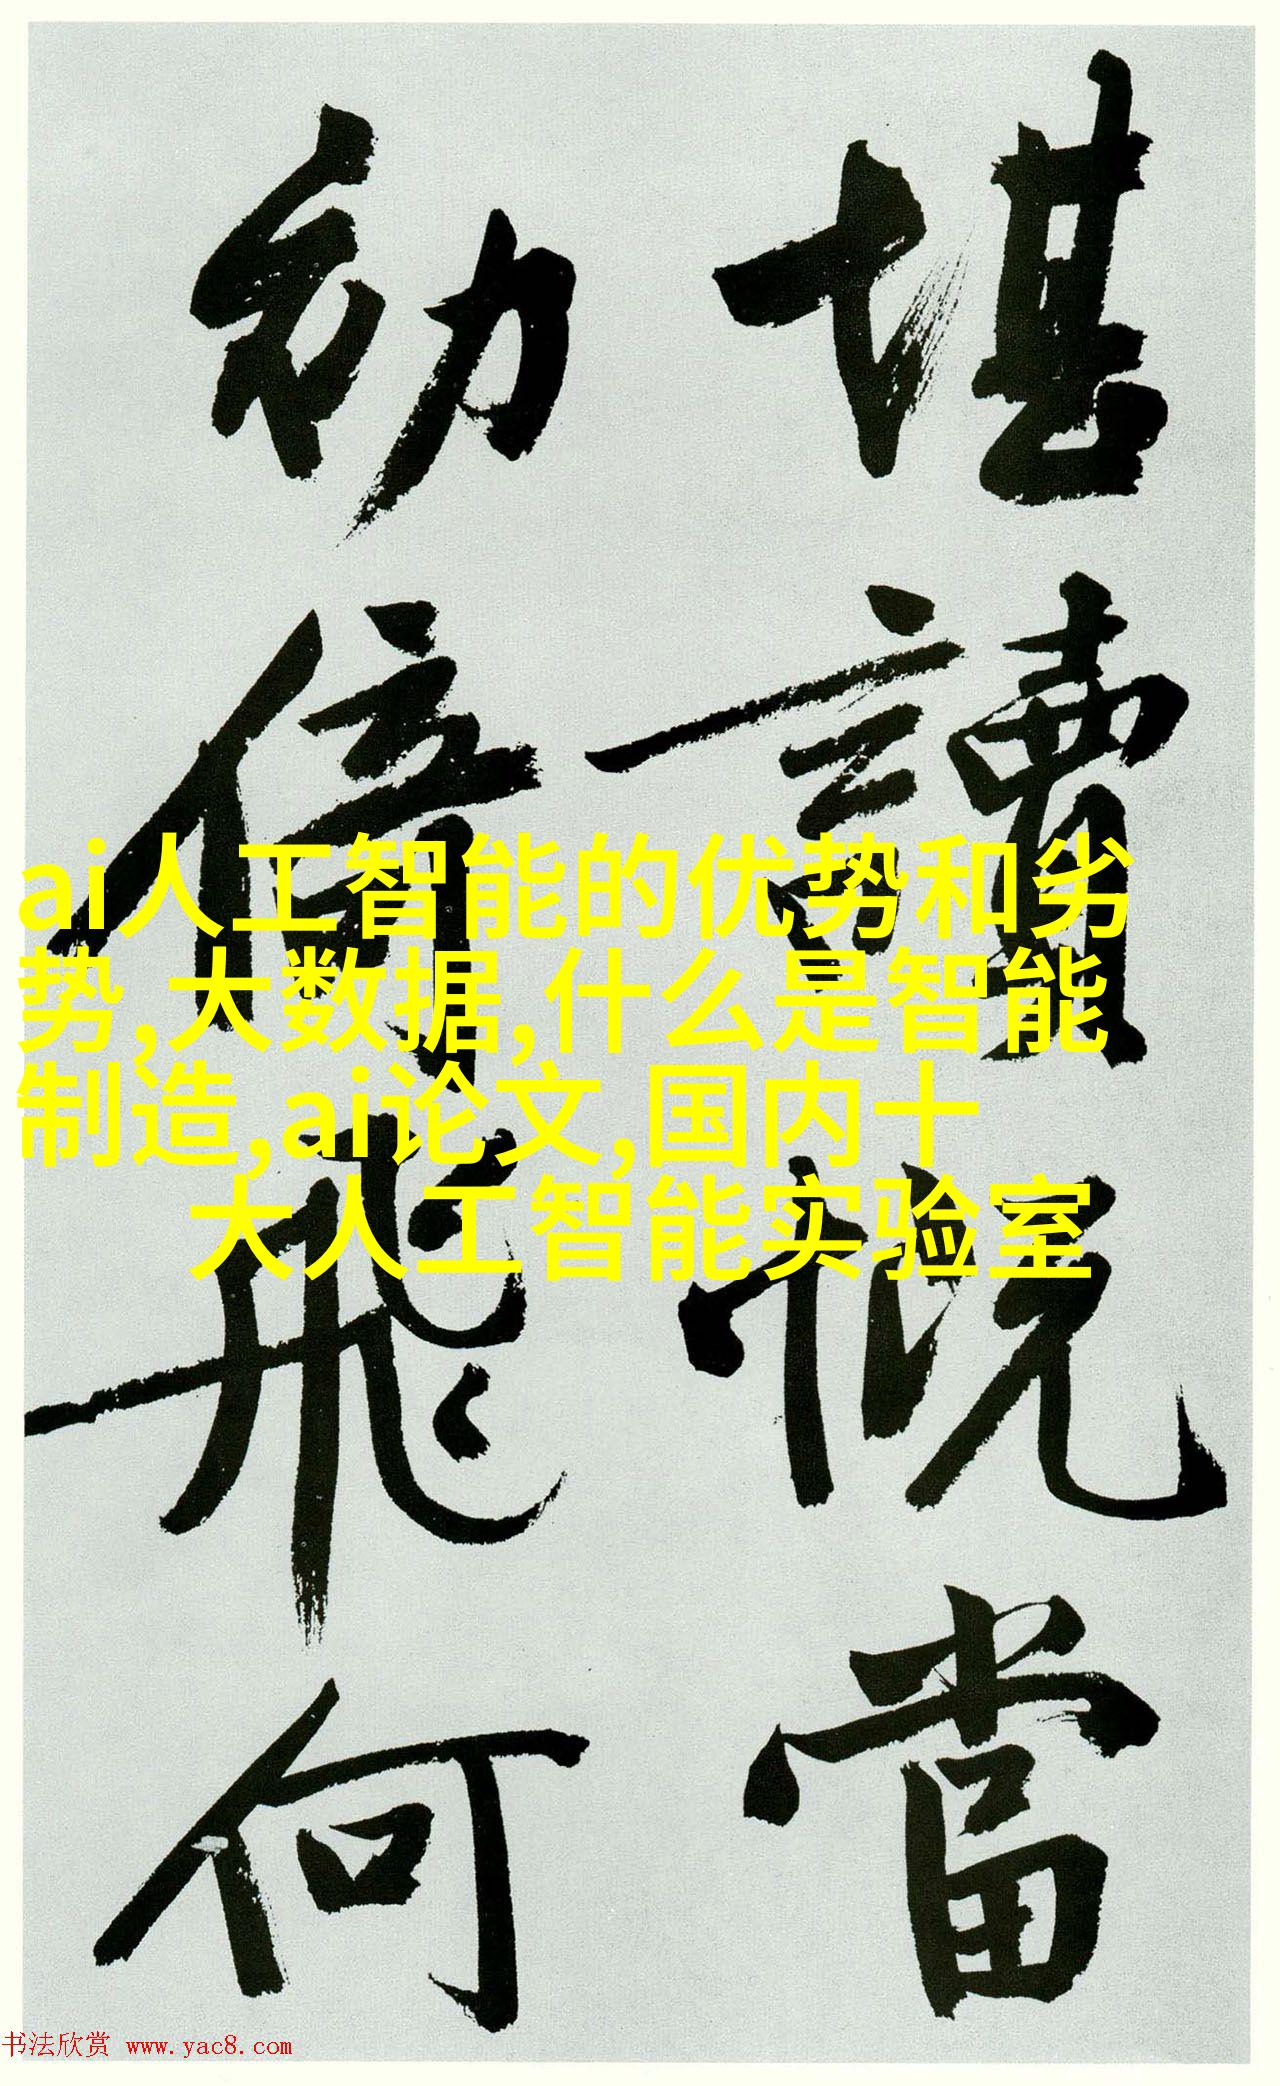 堪讀慨當
幼倚飛何
ai人工智能的优势和劣
势,大数据,什么是智能
制造,ai论文,国内十
大人工智能实验室
书法欣赏 www.yac8.com